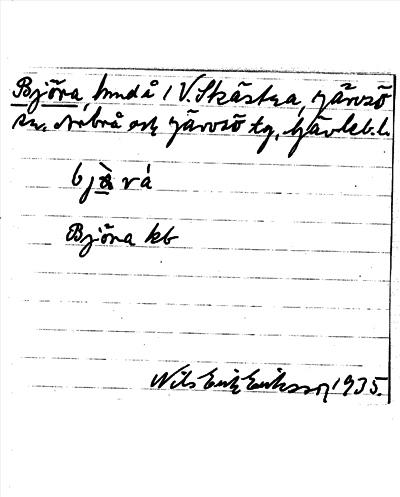 Björa, hmd å i V. Skästra, Järvsö
sn, Arbrå och Järvsö tg, Gävleb. l.
bjö̀rá
Björa kb
Nils Erik Eriksson 1935.